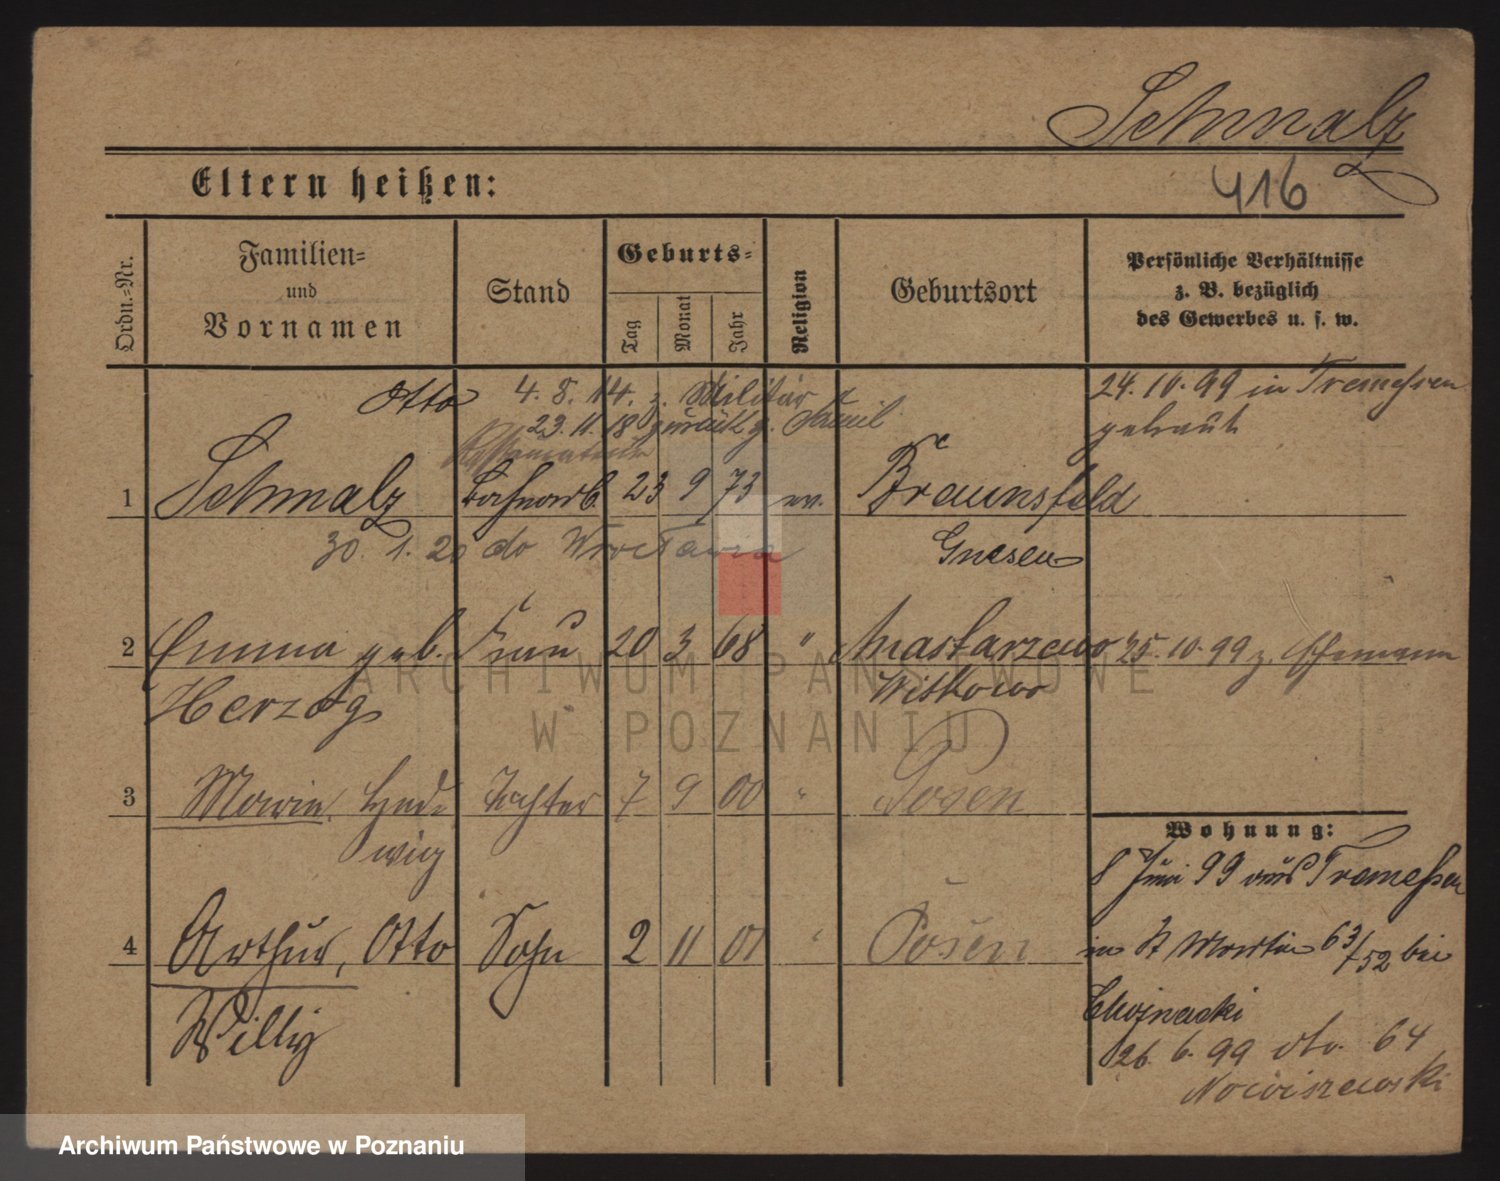 Schmalz
Eltern heißen:
416
Ordn.-Nr.
Familien-
und
Vornamen
Stand
Geburts-
Tag
Monat
Jahr
Religion
Geburtsort
Persönliche Verhältnisse
z. B. bezüglich
des Gewerbes u. s. w.
Otto 4. 8. 14. z. Militär
23. 11. 18 zurück z. Famil
24. 10. 99 in Tremessen
getraut
1 Schmalz Bahnarb. 23 9 73 ev. Braunsfeld
30. 1. 20 do Wrocławia Gnesen
2 Emma geb. Frau 20 3 68 " Mastarzewo 25. 10. 99 z. Ehemann
Herzog Witkowo
3 Marie, Hed- Tochter 7 9 00 " Posen
wig
Wohnung:
8 Juni 99 aus Tremessen
4 Arthur, Otto Sohn 2 11 01 " Posen
in St Martin 63/52 bei
Willy
Chojnacki
26. 6. 99 do. 64
Nowiszewski
ARCHIWUM PAŃSTWOWE
W POZNANIU
Archiwum Państwowe w Poznaniu